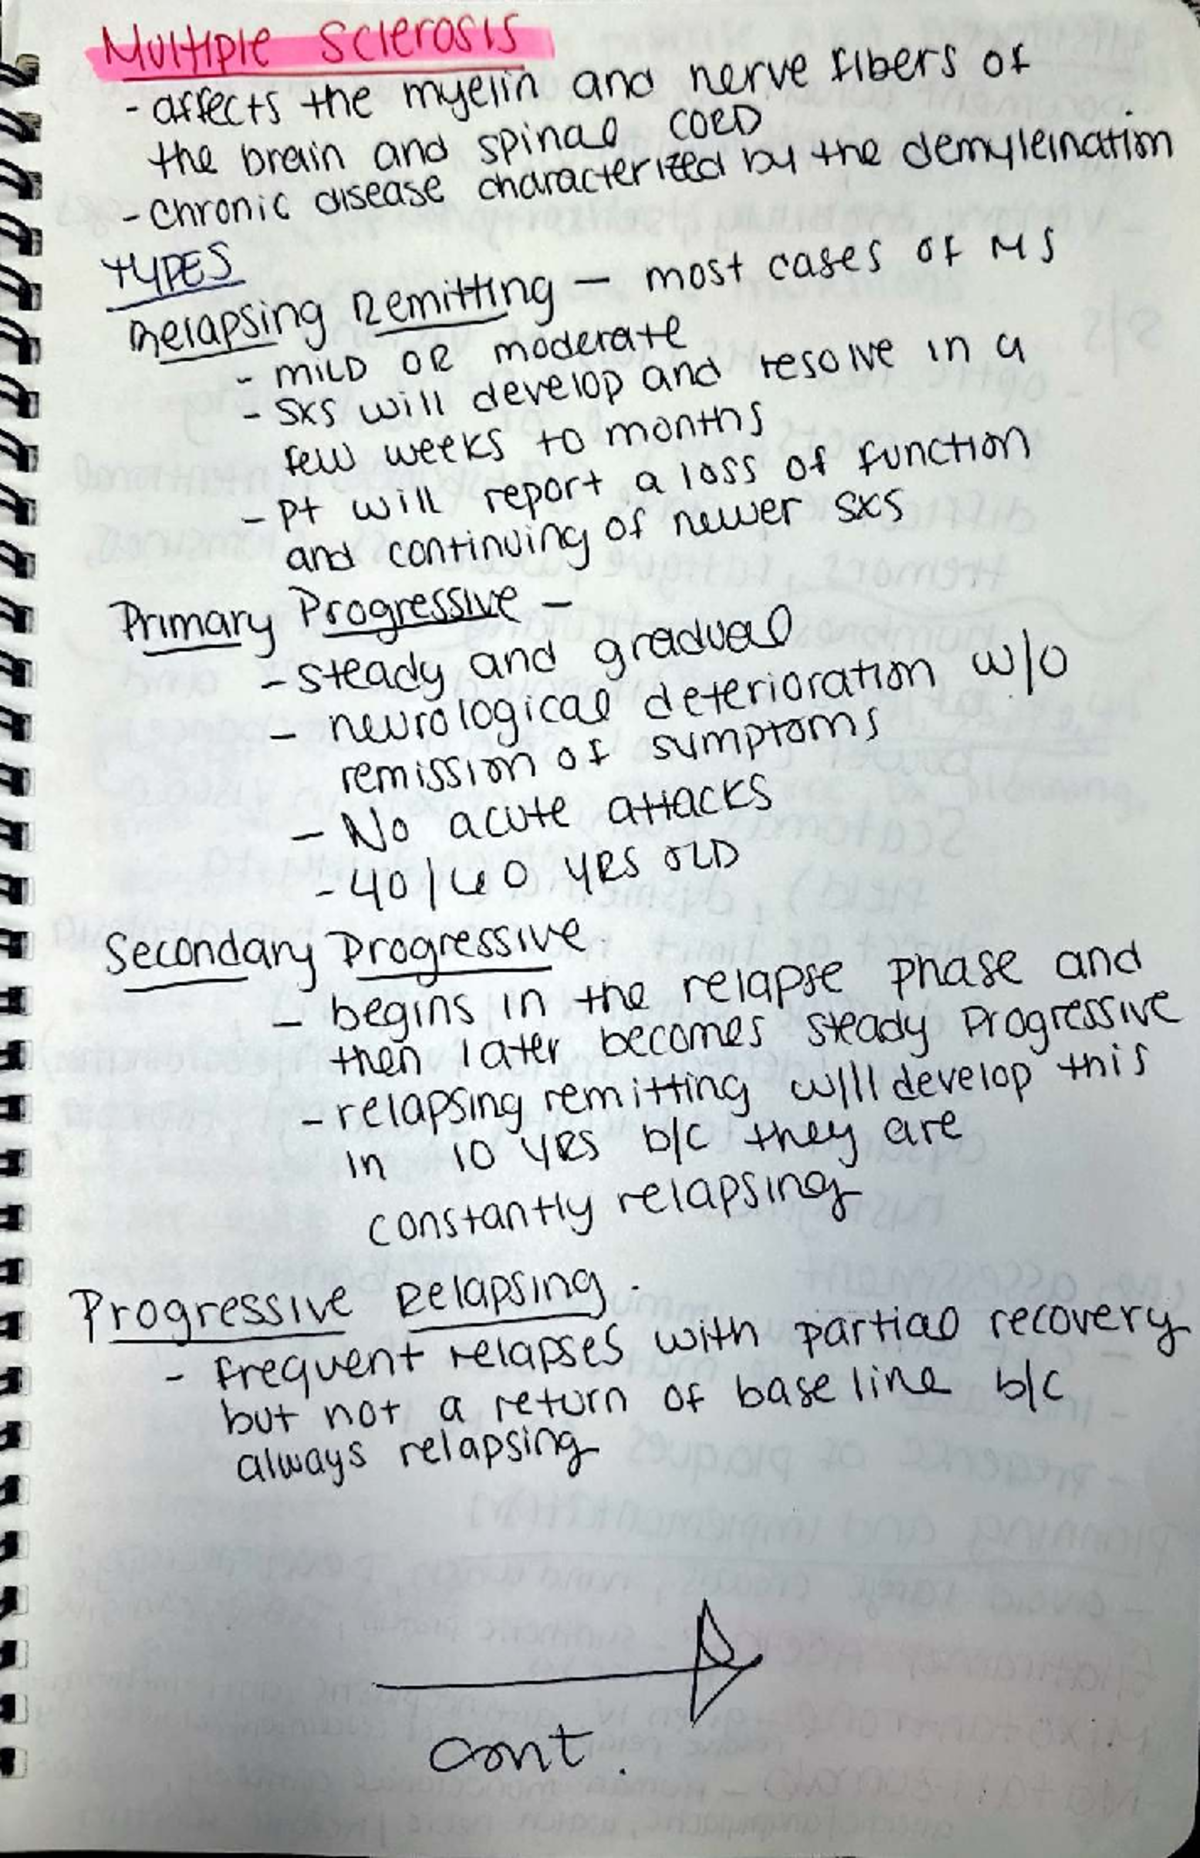 Multiple Sclerosis
- affects the myelin and nerve fibers of
the brain and spinal CORD
- chronic disease characterized by the demyleination
TYPES
Relapsing Remitting — most cases of MS
- MILD OR moderate
- SXS will develop and resolve in a
few weeks to months
- Pt will report a loss of function
and continuing of newer SXS
Primary Progressive —
- steady and gradual
- neurological deterioration w/o
remission of symptoms
- No acute attacks
- 40/60 YRS OLD
Secondary Progressive
- begins in the relapse phase and
then later becomes steady progressive
- relapsing remitting will develop this
in 10 YRS b/c they are
constantly relapsing
Progressive Relapsing.
- frequent relapses with partial recovery
but not a return of baseline b/c
always relapsing
cont.